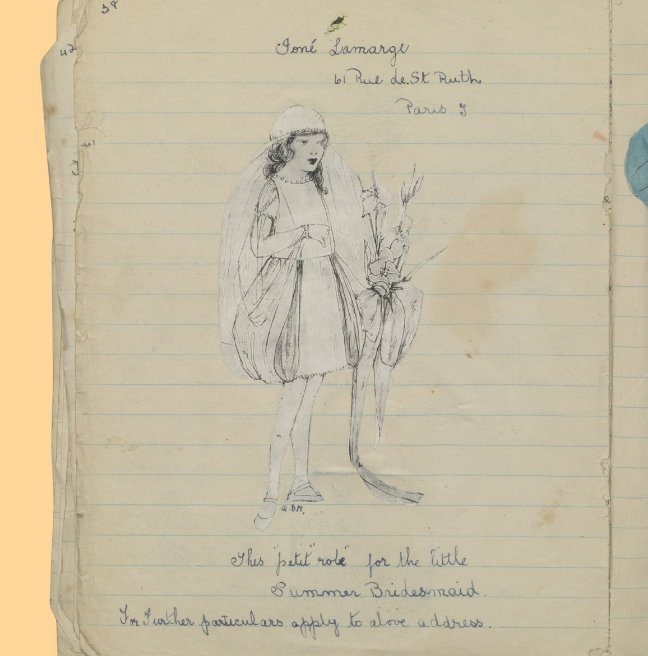 38
42
Ioné Lamarge
61 Rue de St Ruth
Paris J
G.DM.
This "petit" robe" for the little
Summer Bridesmaid.
For Further particulars apply to above address.